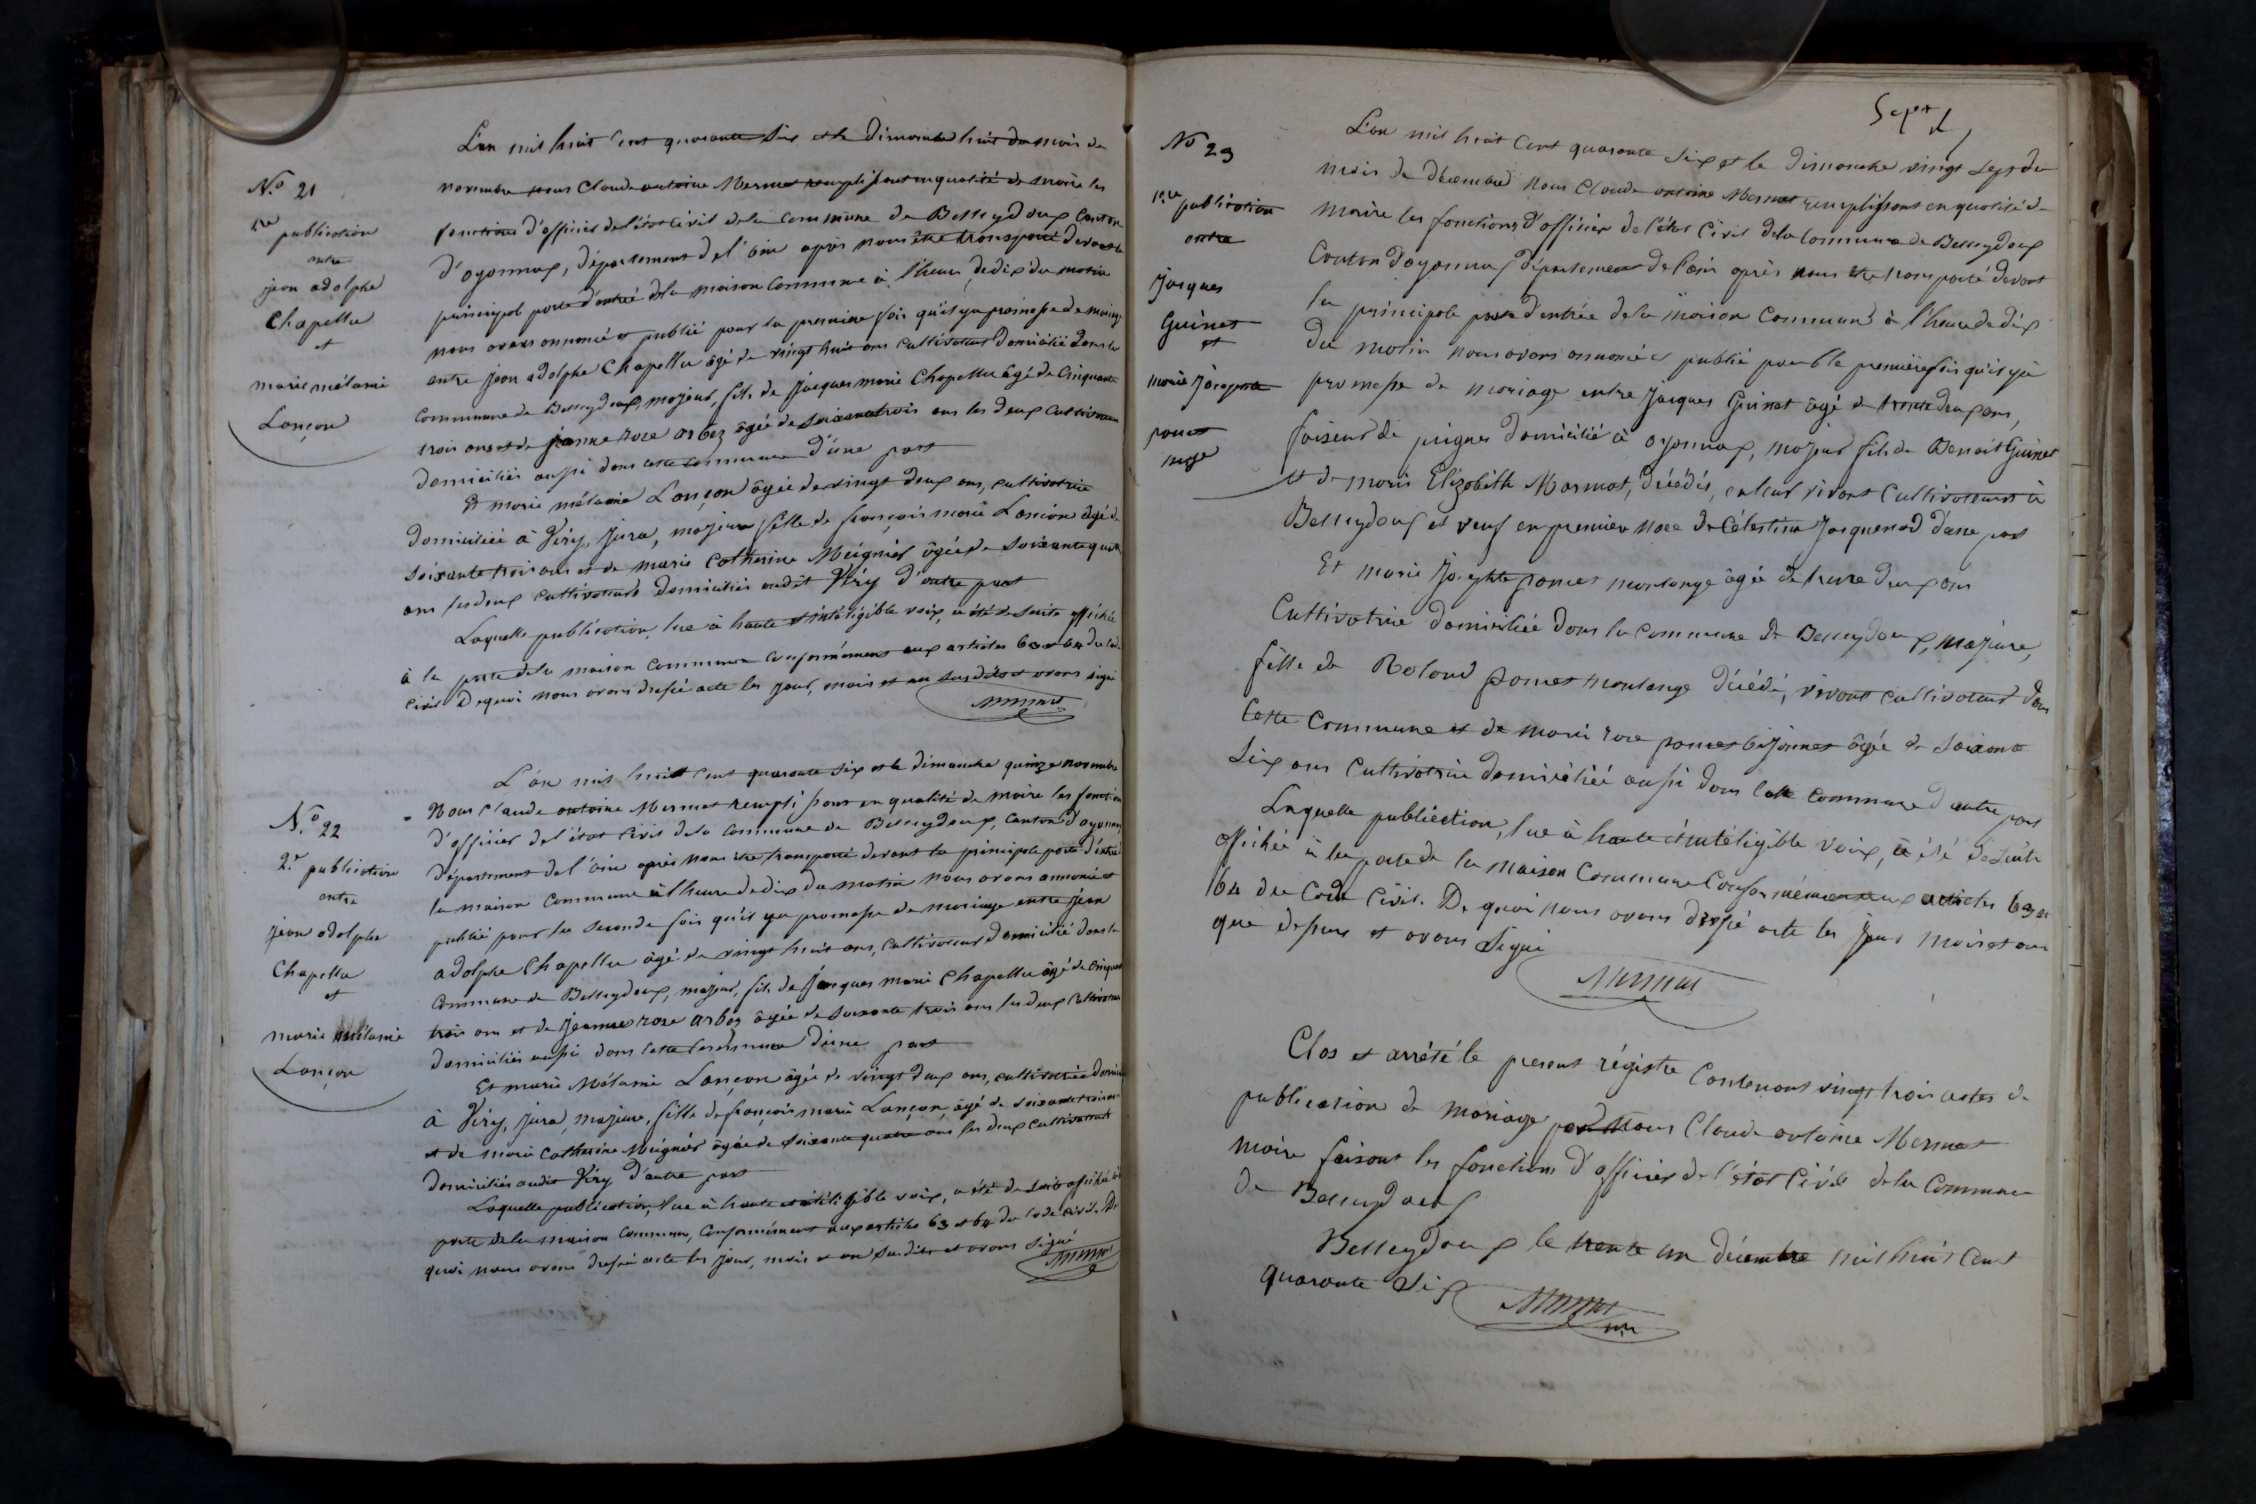 N.o 21
1re publication
entre
jean adolphe
Chapellu
et
marie mélanie
Lançon
L'an mil huit cent quarante six et le dimanche huit du mois de
novembre nous Claude antoine Mermet remplissant en qualité de maire les
fonctions d'officier de l'état civil de la commune de Belleydoux Canton
d'oyonnax, département de l'ain après nous être transporté devant la
principal porte d'entrée de la maison commune à l'heure de dix du matin
nous avons annoncé et publié pour la première fois qu'il y a promesse de mariage
entre jean adolphe Chapellu âgé de vingt huit ans cultivateur domicilié dans la
commune de Belleydoux, majeur, fils de jacques marie Chapellu âgé de cinquante
trois ans et de jeanne rose arbez âgée de soixante trois ans les deux cultivateurs
domiciliés aussi dans cette commune d'une part
Et marie mélanie Lançon âgée de vingt deux ans, cultivatrice
domiciliée à Viry, jura, majeure fille de françois marie Lançon âgé de
soixante trois ans et de marie catherine Meignier âgée de soixante quatre
ans les deux cultivateurs domiciliés audit Viry d'autre part
Laquelle publication, lue à haute et intéligible voix, a été de suite affichée
à la porte de la maison commune conformément aux articles 63 et 64 du code
civil De quoi nous avons dressé acte les jour, mois et an susdits et avons signé
Mermet
N.o 22
2.e publication
entre
jean adolphe
Chapellu
et
marie mélanie
Lançon
L'an mil huit cent quarante six et le dimanche quinze novembre
Nous Claude antoine Mermet remplissant en qualité de maire les fonctions
d'officier de l'état civil de la commune de Belleydoux, canton d'oyonnax,
département de l'ain après nous être transporté devant la principale porte d'entrée
la maison commune à l'heure de dix du matin nous avons annoncé et
publié pour la seconde fois qu'il y a promesse de mariage entre jean
adolphe Chapellu âgé de vingt huit ans, cultivateur domicilié dans la
commune de Belleydoux, majeur, fils de jacques marie Chapellu âgé de cinquante
trois ans et de jeanne rose arbez âgée de soixante trois ans les deux cultivateurs
domiciliés aussi dans cette commune d'une part
Et marie Mélanie Lançon âgée de vingt deux ans, cultivatrice
à Viry, jura, majeure, fille de françois marie Lançon, âgé de soixante trois ans
et de marie catherine Meignier âgée de soixante quatre ans les deux cultivateurs
domiciliés audit Viry d'autre part
Laquelle publication, lue à haute et intéligible voix, a été de suite affichée à la
porte de la maison commune, conformément aux articles 63 et 64 du code civil. De
quoi nous avons dressé acte les jour, mois et an susdits et avons signé
Mermet
Sept
No 23
1re publication
entre
Jacques
Guinet
et
marie Josephte
poncet
L'an mil huit cent quarante six et le dimanche vingt sept du
mois de décembre nous Claude antoine Mermet remplissant en qualité de
maire les fonctions d'officier de l'état civil de la commune de Belleydoux
Canton d'oyonnax département de l'ain après nous être transporté devant
la principale porte d'entrée de la maison commune à l'heure de dix
du matin nous avons annoncé et publié pour la première fois qu'il y a
promesse de mariage entre Jacques Guinet âgé de trente deux ans,
faiseur de peignes domicilié à oyonnax, majeur fils de Benoit Guinet
et de marie Elizabeth Mermet, décédés, en leur vivant cultivateurs à
Belleydoux et veuf en premier noce de Célestine Jacquenod d'une part
Et marie Josephte poncet montange âgée de trente deux ans
Cultivatrice domiciliée dans la commune de Belleydoux, majeure,
fille de Roland poncet montange décédé, vivant cultivateur dans
Cette commune et de marie rose poncet bijonnet âgée de soixante
six ans cultivatrice domiciliée aussi dans cette commune d'autre part
Laquelle publication, lue à haute et intéligible voix, a été de suite
affichée à la porte de la maison commune conformément aux articles 63 et
64 du Code Civil. De quoi nous avons dressé acte les jour mois et an
que dessus et avons signé
Mermet
Clos et arrêté le présent régistre contenant vingt trois actes de
publication de mariage par Nous Claude antoine Mermet
maire faisant les fonctions d'officier de l'état civil de la commune
de Belleydoux
Belleydoux le trente un décembre mil huit cent
quarante six
Mermet